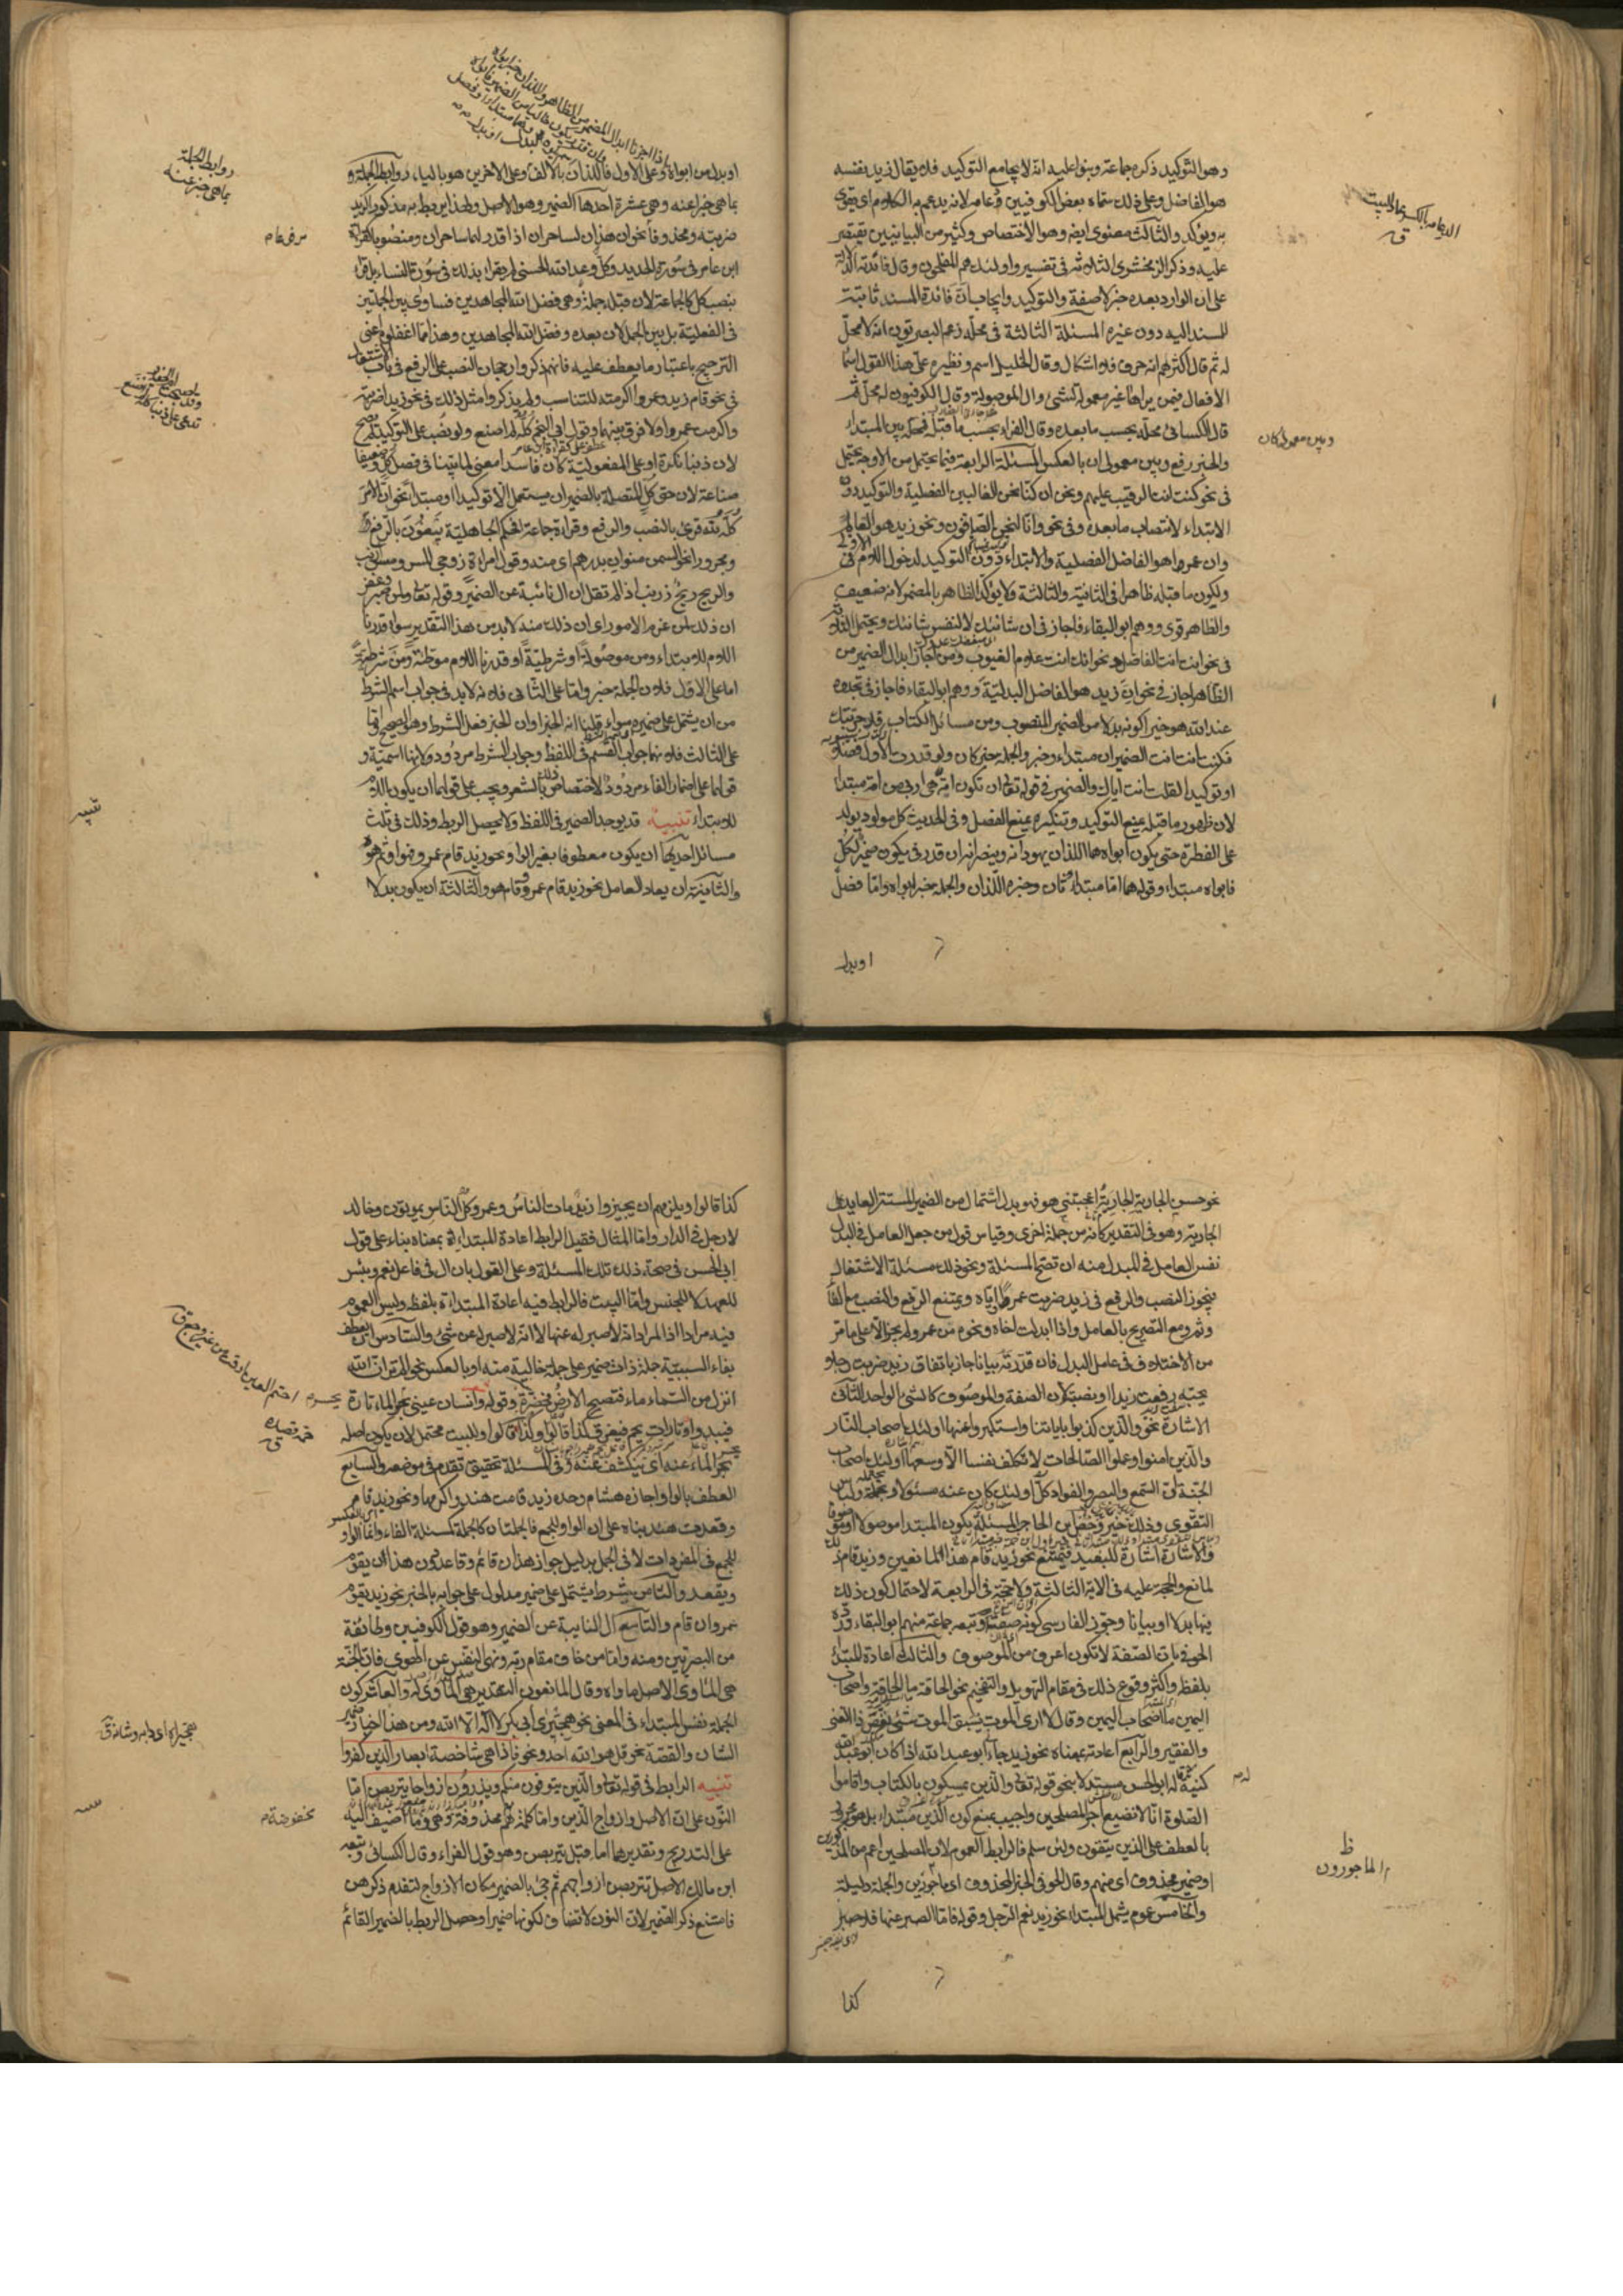 وهو التوكيد ذكره جماعة وبنوا عليه انه لا يجامع التوكيد فلا يقال زيد نفسه
هو الفاضل وعلى ذلك سماه بعض الكوفيين دعامة لانه يدعم به الكلام اى يقوى
به ويؤكد والثالث معنوى ايضا وهو الاختصاص وكثير من البيانيين يقتصر
عليه وذكر الزمخشرى الثلاثة فى تفسير واولئك هم المفلحون وقال فائدته الدلالة
على ان الوارد بعده خبر لا صفة والتوكيد وايجاب ان فائدة المسند ثابتة
للمسند اليه دون غيره المسئلة الثالثة فى محله زعم البصريون انه لا محل
له ثم قال اكثرهم انه حرف فلا اشكال وقال الخليل اسم ونظيره على هذا القول اسما
الافعال فيمن يراها غير معمولة لشئ وال الموصولة وقال الكوفيون له محل ثم
قال الكسائى محله بحسب ما بعده وقال الفراء بحسب ما قبله فمحله بين المبتداء
والخبر رفع وبين معمولى ان بالعكس المسئلة الرابعة فيما يحتمل من الاوجه يحتمل
فى نحو كنت انت الرقيب عليهم ونحو ان كنا نحن الغالبين الفصلية والتوكيد دون
الابتداء لانتصاب ما بعده وفى نحو وانا لنحن الصافون ونحو زيد هو العالم
وان عمروا هو الفاضل الفصلية والابتداء دون التوكيد لدخول اللام فى الاولى
ولكون ما قبله ظاهرا فى الثانية والثالثة ولا يؤكد الظاهر بالمضمر لانه ضعيف
والظاهر قوى ووهم ابو البقاء فاجاز فى ان شانئك لا لنفس شانئك ويحتمل الثلثة
فى نحو انت انت الفاضل ونحو انك انت علام الغيوب ومن اجاز ابدال الضمير من
الظاهر اجاز فى نحو ان زيد هو الفاضل البدلية ووهم ابو البقاء فاجاز فى تجدوه
عند الله هو خيرا كونه بدلا من الضمير المنصوب ومن مسائل الكتاب قد جربتك
فكنت انت انت الضميران مبتداء وخبر والجملة خبر كان ولو قدرت الاول فصلا
او توكيدا لقلت انت اياك والضمير فى قوله تعالى ان تكون امة هى اربى من امة مبتدا
لان ظهور ما قبله يمنع التوكيد وتنكيره يمنع الفصل وفى الحديث كل مولود يولد
على الفطرة حتى يكون ابواه هما اللذان يهودانه وينصرانه ان قدر فى يكون ضمير لكل
فابواه مبتداء وقوله هما اما مبتداء ثان وخبره اللذان والجملة خبر ابواه واما فصل
او بدل
وبين معمولى كان
او بدل من ابواه وعلى الاول فاللذان بالالف وعلى الاخرين هو بالياء روابط الجملة و
بما هى خبر عنه وهى عشرة احدها الضمير وهو الاصل ولهذا يربط به مذكورا كزيد
ضربته ومحذوفا نحو ان هذان لساحران اذا قدر لهما ساحران ومنصوبا كقراءة
ابن عامر فى سورة الحديد وكل وعد الله الحسنى ولم يقراء بذلك فى سورة النساء بل قرأ
بنصب كل كالجماعة لان قبله جملة وهى فضل الله المجاهدين فساوى بين الجملتين
فى الفعلية بل بين الجمل لان بعده وفضل الله المجاهدين وهذا مما اغفلوه اعنى
الترجيح باعتبار ما يعطف عليه فانهم ذكروا رجحان النصب على الرفع فى باب الاشتغال
فى نحو قام زيد وعمروا اكرمته للتناسب ولم يذكروا مثل ذلك فى نحو زيدا ضربته
واكرمت عمروا ولا فرق بينهما وقول ابى النجم كله لم اصنع ولو نصب على التوكيد لم يصح
لان ذنبا نكرة او على المفعولية كان فاسدا معنى لما بينا فى فصل كل وضعيفا
صناعة لان حق كل المتصلة بالضمير ان يستعمل الا توكيدا او مبتداء نحو ان الامر
كله لله قرئ بالنصب والرفع وقراءة جماعة افحكم الجاهلية يبغون بالرفع
ومجرورا نحو السمن منوان بدرهم اى منه وقول امراة زوجى المس مس ارنب
والريح ريح زرنب اذا لم تقل ان ال نائبة عن الضمير وقوله تعالى ولمن صبر وغفر
ان ذلك لمن عزم الامور اى ان ذلك منه لابد من هذا التقدير سواء قدرنا
اللام للابتداء ومن موصولة او شرطية او قدرنا اللام موطئة ومن شرطية
اما على الاول فلان الجملة خبر واما على الثانى فلانه لابد فى جواب اسم الشرط
من ان يشتمل على ضميره سواء قلنا انه الخبر او ان الخبر فعل الشرط وهو الصحيح واما
على الثالث فلانها جواب القسم فى اللفظ وجواب الشرط مردود لانها اسمية و
قولها على اضمار الفاء مردود لاختصاص ذلك بالشعر ويجب على قولهما ان يكون اللام
للابتداء تنبيه قد يوجد الضمير فى اللفظ ولا يحصل الربط وذلك فى ثلث
مسائل احديها ان يكون معطوفا بغير الواو نحو زيد قام عمرو فهو او ثم هو
والثانية ان يعاد العامل نحو زيد قام عمرو وقام هو والثالثة ان يكون بدلا
روابط الجملة
بما هى خبر عنه
تنبيه
نحو حسن الجارية الجارية اعجبتنى هو فهو بدل اشتمال من الضمير المستتر العايد على
الجارية وهو فى التقدير كانه من جملة اخرى وقياس قول من جعل العامل فى البدل
نفس العامل فى المبدل منه ان تصح المسئلة ونحو ذلك مسئلة الاشتغال
فيجوز النصب والرفع فى زيد ضربت عمروا اياه ويمتنع الرفع والنصب مع الفا
وثم ومع التصريح بالعامل واذا ابدلت اخاه ونحوه من عمرو لم يجز الا على ما مر
من الاختلاف فى عامل البدل فان قدرته بيانا جاز باتفاق زيد ضربت رجلا
يحبه رفعت زيدا او نصبته لان الصفة والموصوف كالشئ الواحد الثانى
الاشارة نحو والذين كذبوا باياتنا واستكبروا عنها اولئك اصحاب النار
والذين امنوا وعملوا الصالحات لا تكلف نفسا الا وسعها اولئك اصحاب
الجنة ان السمع والبصر والفواد كل اولئك كان عنه مسئولا ويحتمله ولباس
التقوى وذلك خير وخص ابن الحاج المسئلة بكون المبتدا موصولا او موصوفا
والاشارة اشارة للبعيد فيمتنع نحو زيد قام هذا لمانعين وزيد قام ذلك
لمانع والحجة عليه فى الاية الثالثة ولا حجة فى الرابعة لاحتمال كون ذلك
فيها بدلا او بيانا وجوز الفارسى كونه صفة وتبعه جماعة منهم ابو البقاء ورده
الحوفى بان الصفة لا تكون اعرف من الموصوف والثالث اعادة المبتدا
بلفظه واكثر وقوع ذلك فى مقام التهويل والتفخيم نحو الحاقة ما الحاقة واصحاب
اليمين ما اصحاب اليمين وقال لا ارى الموت يسبق الموت شئ نغص ذا الغنى
والفقير والرابع اعادته بمعناه نحو زيد جاء ابو عبد الله اذا كان ابو عبد الله
كنية له ابو الحسن مستدلا بنحو قوله تعالى والذين يمسكون بالكتاب واقاموا
الصلوة انا لا نضيع اجر المصلحين واجيب بمنع كون الذين مبتداء بل هو مجرور
بالعطف على الذين يتقون ولئن سلم فالرابط العموم لان المصلحين اعم من المذكورين
او ضمير محذوف اى منهم وقال الحوفى الخبر محذوف اى ماجورين والجملة دليله
والخامس عموم يشمل المبتداء نحو زيد نعم الرجل وقوله فاما الصبر عنها فلا صبر
كذا
الماجورون
كذا قالوا ويلزمهم ان يجيزوا زيد مات الناس وعمرو كل الناس يموتون وخالد
لا رجل فى الدار واما المثال فقيل الرابط اعادة المبتداء بمعناه بناء على قول
ابى الحسن فى صحة ذلك تلك المسئلة وعلى القول بان ال فى فاعل نعم وبئس
للعهد لا للجنس واما البيت فالرابط فيه اعادة المبتداء بلفظه وليس العموم
فيه مرادا اذ المراد انه لا صبر له عنها لا انه لا صبر له عن شئ والسادس ان يعطف
بفاء السببية جملة ذات ضمير على جملة خالية منه او بالعكس نحو الم تر ان الله
انزل من السماء ماء فتصبح الارض مخضرة وقوله وانسان عينى يحسر الماء تارة
فيبدو وتارات يجم فيغرق كذا قالوا والبيت محتمل لان يكون اصله
يحسر الماء عنه اى ينكشف عنه وفى المسئلة تحقيق تقدم فى موضعه والسابع
العطف بالواو اجازه هشام وحده زيد قامت هند واكرمها ونحو زيد قام
وقعدت هند بناء على ان الواو للجمع فالجملتان كالجملة كمسئلة الفاء وانما الواو
للجمع فى المفردات لا فى الجمل بدليل جواز هذان قائم وقاعد دون هذان يقوم
ويقعد والثامن شرط يشتمل على ضمير مدلول على جوابه بالخبر نحو زيد يقوم
عمرو ان قام والتاسع ال النايبة عن الضمير وهو قول الكوفيين وطائفة
من البصريين ومنه واما من خاف مقام ربه ونهى النفس عن الهوى فان الجنة
هى الماوى الاصل ماواه وقال المانعون التقدير هى الماوى له والعاشر كون
الجملة نفس المبتداء فى المعنى نحو هجيرى ابى بكر لا اله الا الله ومن هذا اخبار ضمير
الشان والقصة نحو قل هو الله احد ونحو فاذا هى شاخصة ابصار الذين كفروا
تنبيه الرابط فى قوله تعالى والذين يتوفون منكم ويذرون ازواجا يتربصن اما
النون على ان الاصل وازواج الذين واما كلمة هم محذوفة وهى وما اضيف اليه
على التدريج وتقديرهما اما قبل يتربصن وهو قول الفراء وقال الكسائى وتبعه
ابن مالك الاصل يتربص ازواجهم ثم جئ بالضمير مكان الازواج لتقدم ذكرهن
فامتنع ذكر الضمير لان النون لا تضاف لكونها ضميرا وحصل الربط بالضمير القائم